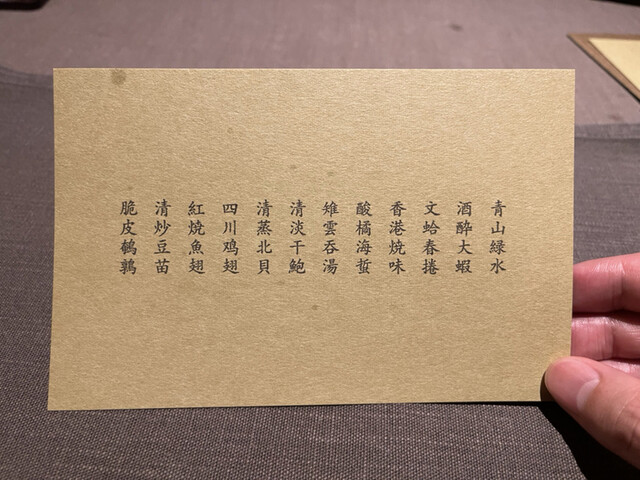 青山緑水
酒醉大蝦
文蛤春捲
香港焼味
酸橘海蜇
雉雲呑湯
清淡干鮑
清蒸北貝
四川鸡翅
紅焼魚翅
清炒豆苗
脆皮鵪鶉